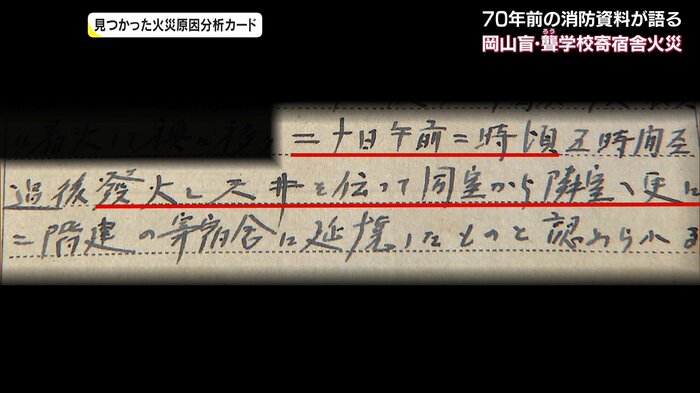 見つかった火災原因分析カード
70年前の消防資料が語る
岡山盲・聾学校寄宿舎火災
ろう
二十日午前二時頃五時間至
過後発火し天井を伝つて同室から隣室へ更に
二階建の寄宿舎に延焼したものと認められる